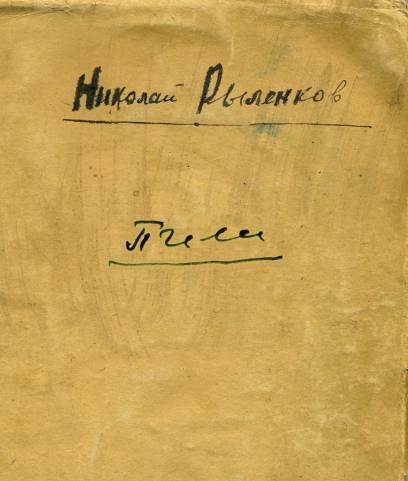 Николай Рыленков
Пчели